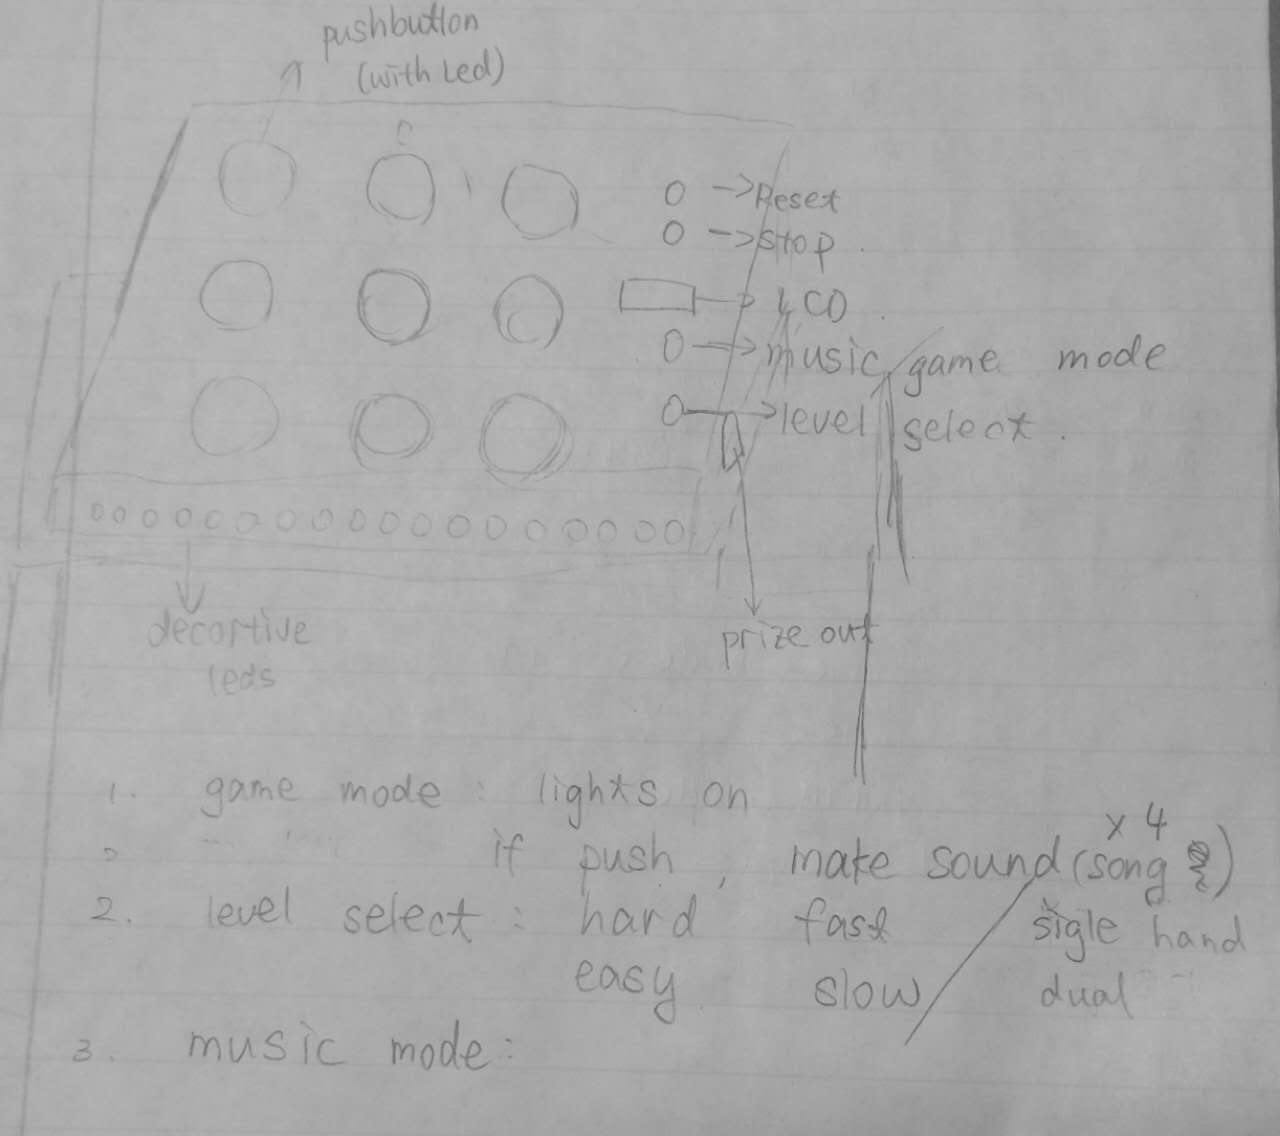 pushbutton
(with Led)
→ Reset
→ stop .
→ LCD .
→ music/game mode
→ level select .
decortive
leds
prize out
1. game mode : lights on
x 4
if push , make sound (song )
2. level select : hard fast / sigle hand
easy slow dual
3. music mode :